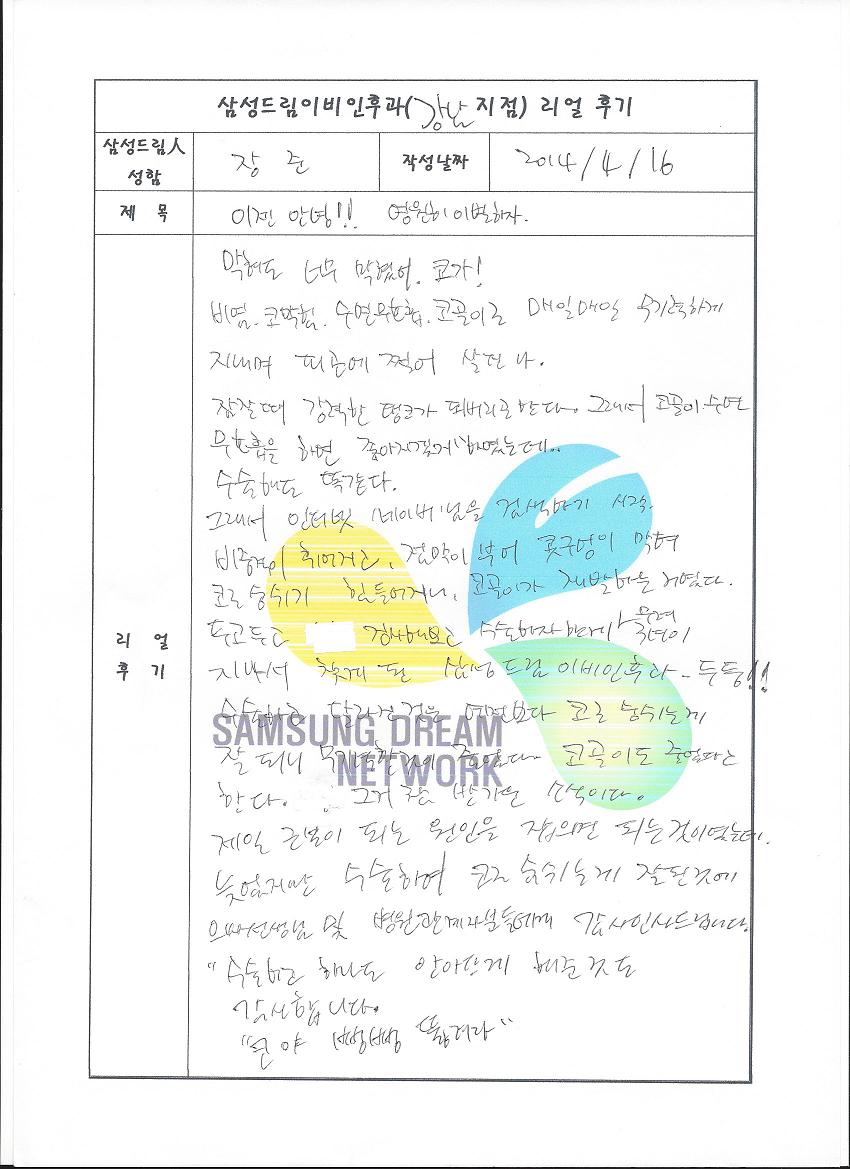 삼성드림이비인후과(강남 지점) 리얼 후기
삼성드림人 성함
장 준
작성날짜
2014/4/16
제 목
이젠 안녕!! 영원히 이별하자.
리 얼 후 기
막혀도 너무 막혔어. 코가!
비염. 코막힘. 수면무호흡. 코골이로 매일매일 무기력하게
지내며 피곤에 쩔어 살던 나.
잠잘때 강력한 탱크가 되버리곤 한다. 그래서 코골이.수면
무호흡을 하면 좋아지겠지 하였는데..
수술해도 똑같다.
그래서 인터넷 '네이버'님을 검색하기 시작.
비중격이 휘어지고, 점막이 부어 콧구멍이 막혀
코로 숨쉬기 힘들어지니, 코골이가 재발하는 거였다.
검사해보고 수술하자 무려
지나서 찾게 된 삼성드림이비인후과 - 두둥!!
수술하고 달라진 것은 예전보다 코로 숨쉬는게
잘 되니 코골이도 줄었다고
한다. 그거 참 반가운 소식이다.
제일 근본이 되는 원인을 잡으면 되는것이였는데.
늦었지만 수술하여 코로 숨쉬는게 잘된것에
의사선생님 및 병원관계자분들에게 감사인사드립니다.
"수술하고 하나도 안아프게 해준것도
감사합니다.
"코야 뻥뻥 뚫려라"
SAMSUNG DREAM
NETWORK